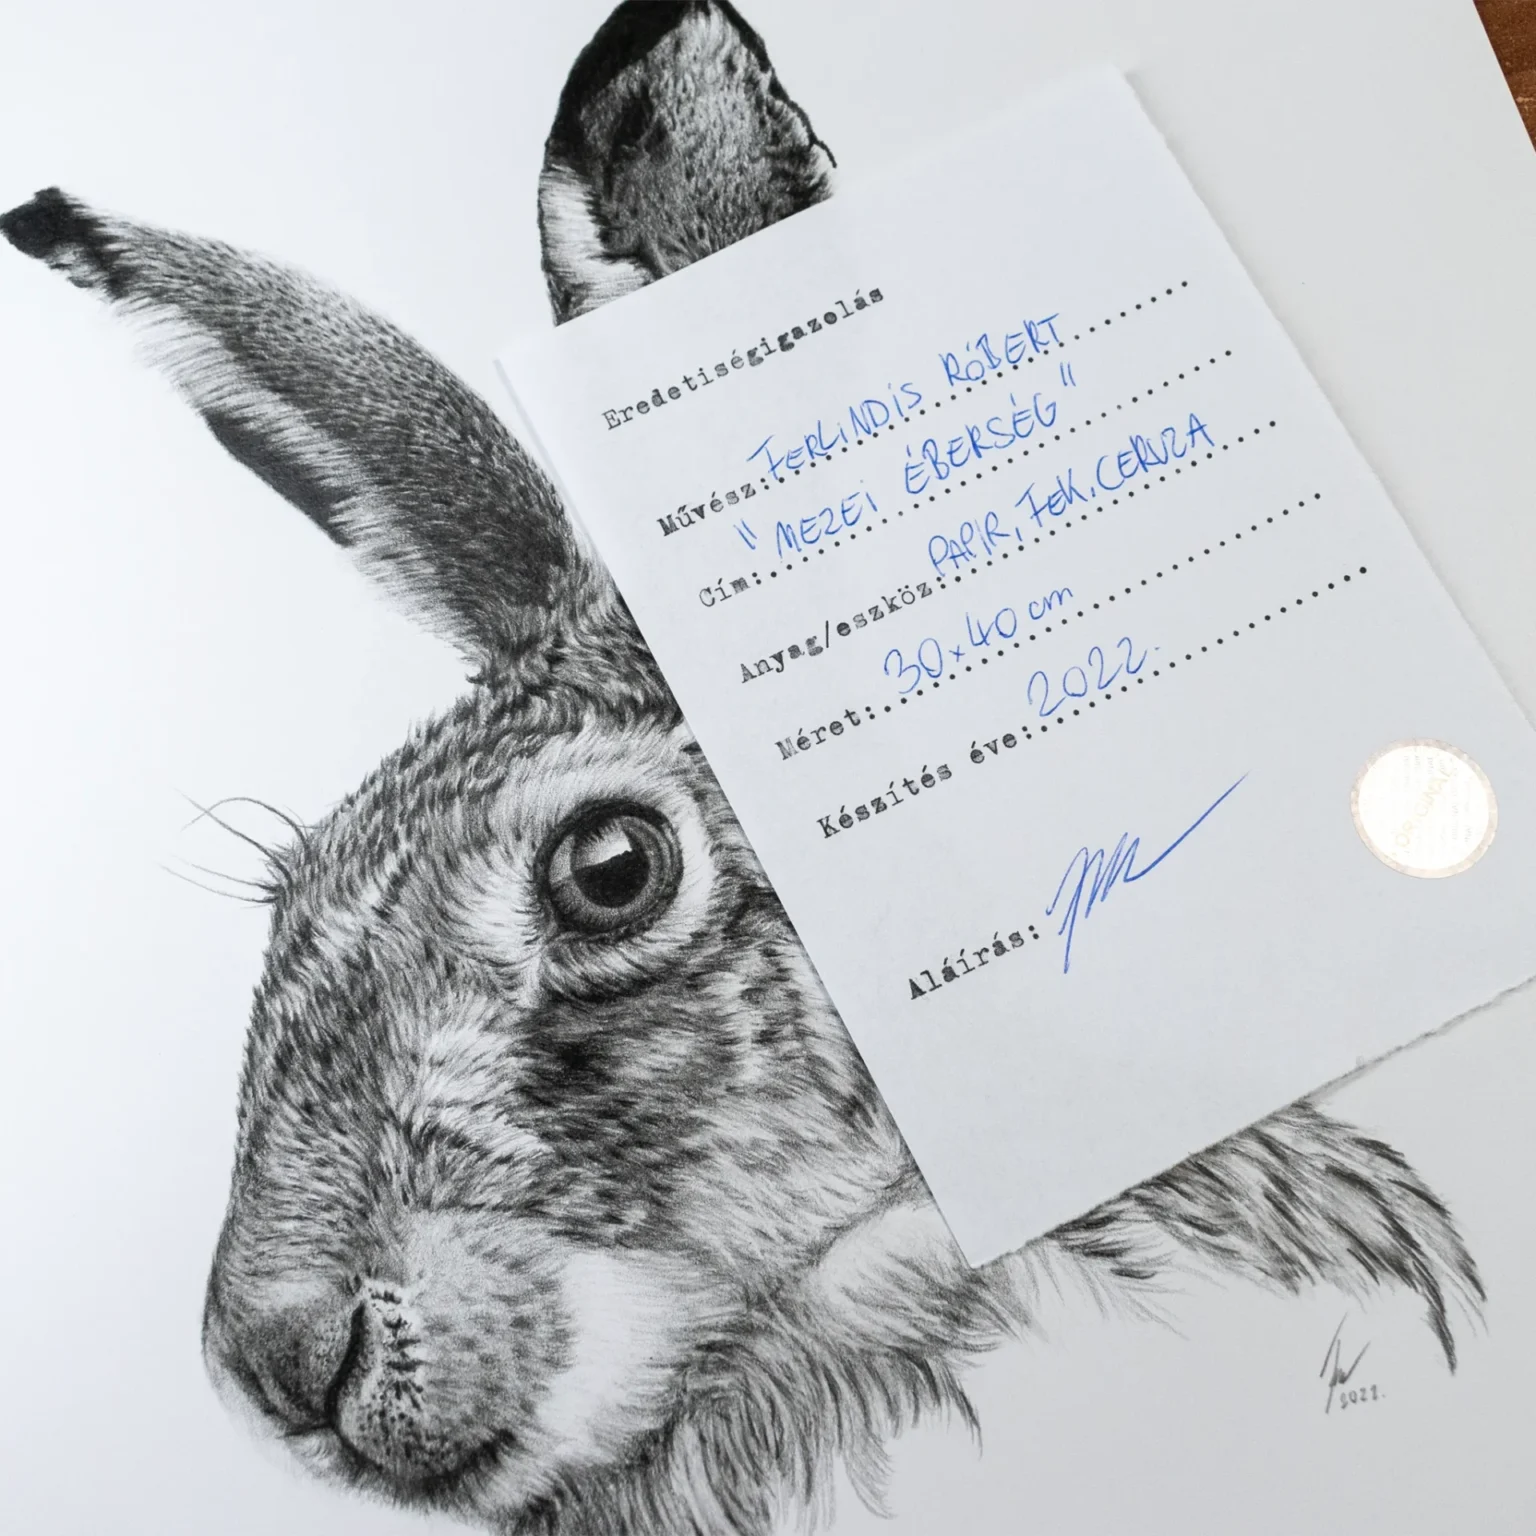 Eredetiségigazolás
Művész: FERLINDIS RÓBERT
Cím: "MEZEI ÉBERSÉG"
Anyag/eszköz: PAPÍR, FEK. CERUZA
Méret: 30x40 cm
Készítés éve: 2022.
Aláírás:
ORIGINAL
2022.